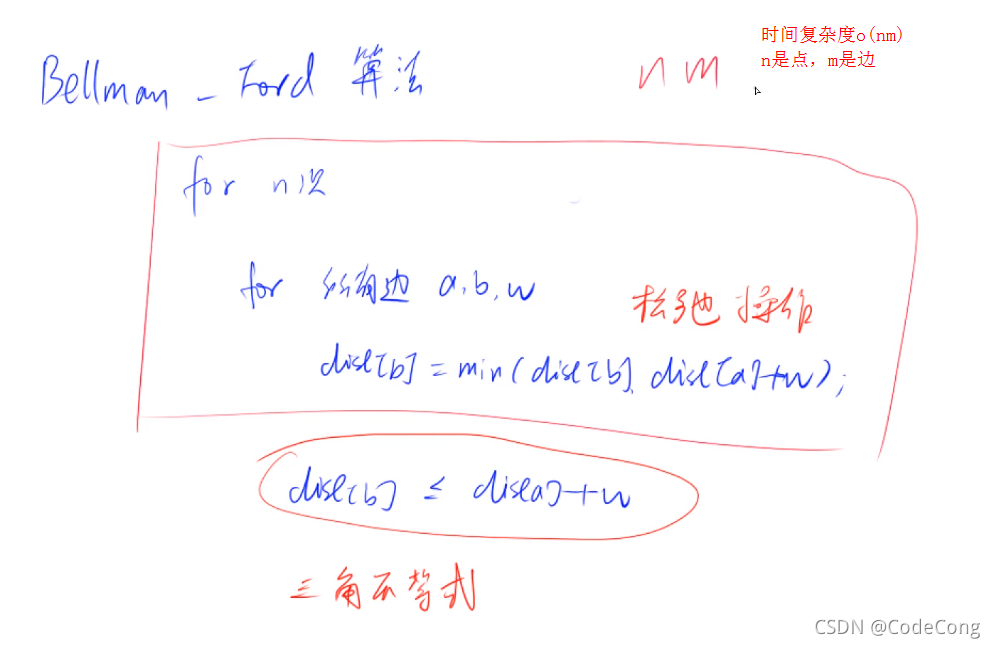 Bellman - Ford 算法
n m
时间复杂度o(nm)
n是点，m是边
for n次
for 所有边 a,b,w
松弛操作
dist[b] = min(dist[b], dist[a]+w);
dist[b] ≤ dist[a]+w
三角不等式
CSDN @CodeCong